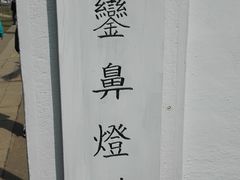 鑾鼻燈